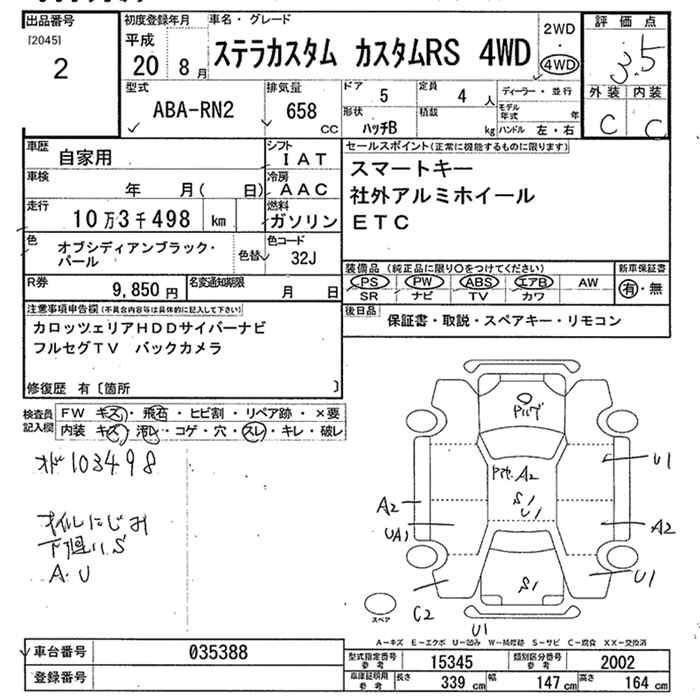 出品番号
[2045]
2
初度登録年月
平成
20 8月
車名・グレード
ステラカスタム カスタムRS 4WD
2WD
・
4WD
評価点
3.5
外装 内装
C C
型式
ABA-RN2
排気量
658
CC
ドア
5
定員
4 人
ディーラー・並行
形状
ハッチB
積載
kg
モデル年式 年
ハンドル 左・右
車歴
自家用
シフト
IAT
車検
年 月( 日)
冷房
AAC
走行
10万3千498 km
燃料
ガソリン
色
オブシディアンブラック・
パール
色替
色コード
32J
R券
9,850円
名変通知期限
月 日
セールスポイント(正常に機能するものに限ります)
スマートキー
社外アルミホイール
ETC
装備品 (純正品に限り○をつけてください)
PS PW ABS エアB AW
SR ナビ TV カワ
新車保証書
有・無
後日品
保証書・取説・スペアキー・リモコン
注意事項申告欄(不具合内容等は具体的に記入して下さい)
カロッツェリアHDDサイバーナビ
フルセグTV バックカメラ
修復歴 有〔箇所 〕
検査員
記入欄
FW キズ・飛石・ヒビ割・リペア跡・×要
内装 キズ・汚レ・コゲ・穴・スレ・キレ・破レ
オド103498
オイルにじみ
下廻りS
A.U
A2
S1
U1
U1
A2
UA1
A2
S1
U1
C2
U1
スペア
A-キズ E-エクボ U-凹み W-補修跡 S-サビ C-腐食 XX-交換済
車台番号
035388
登録番号
型式指定番号
参考
15345
類別区分番号
参考
2002
車庫証明用
参考
長さ
339 cm
幅
147 cm
高さ
164 cm